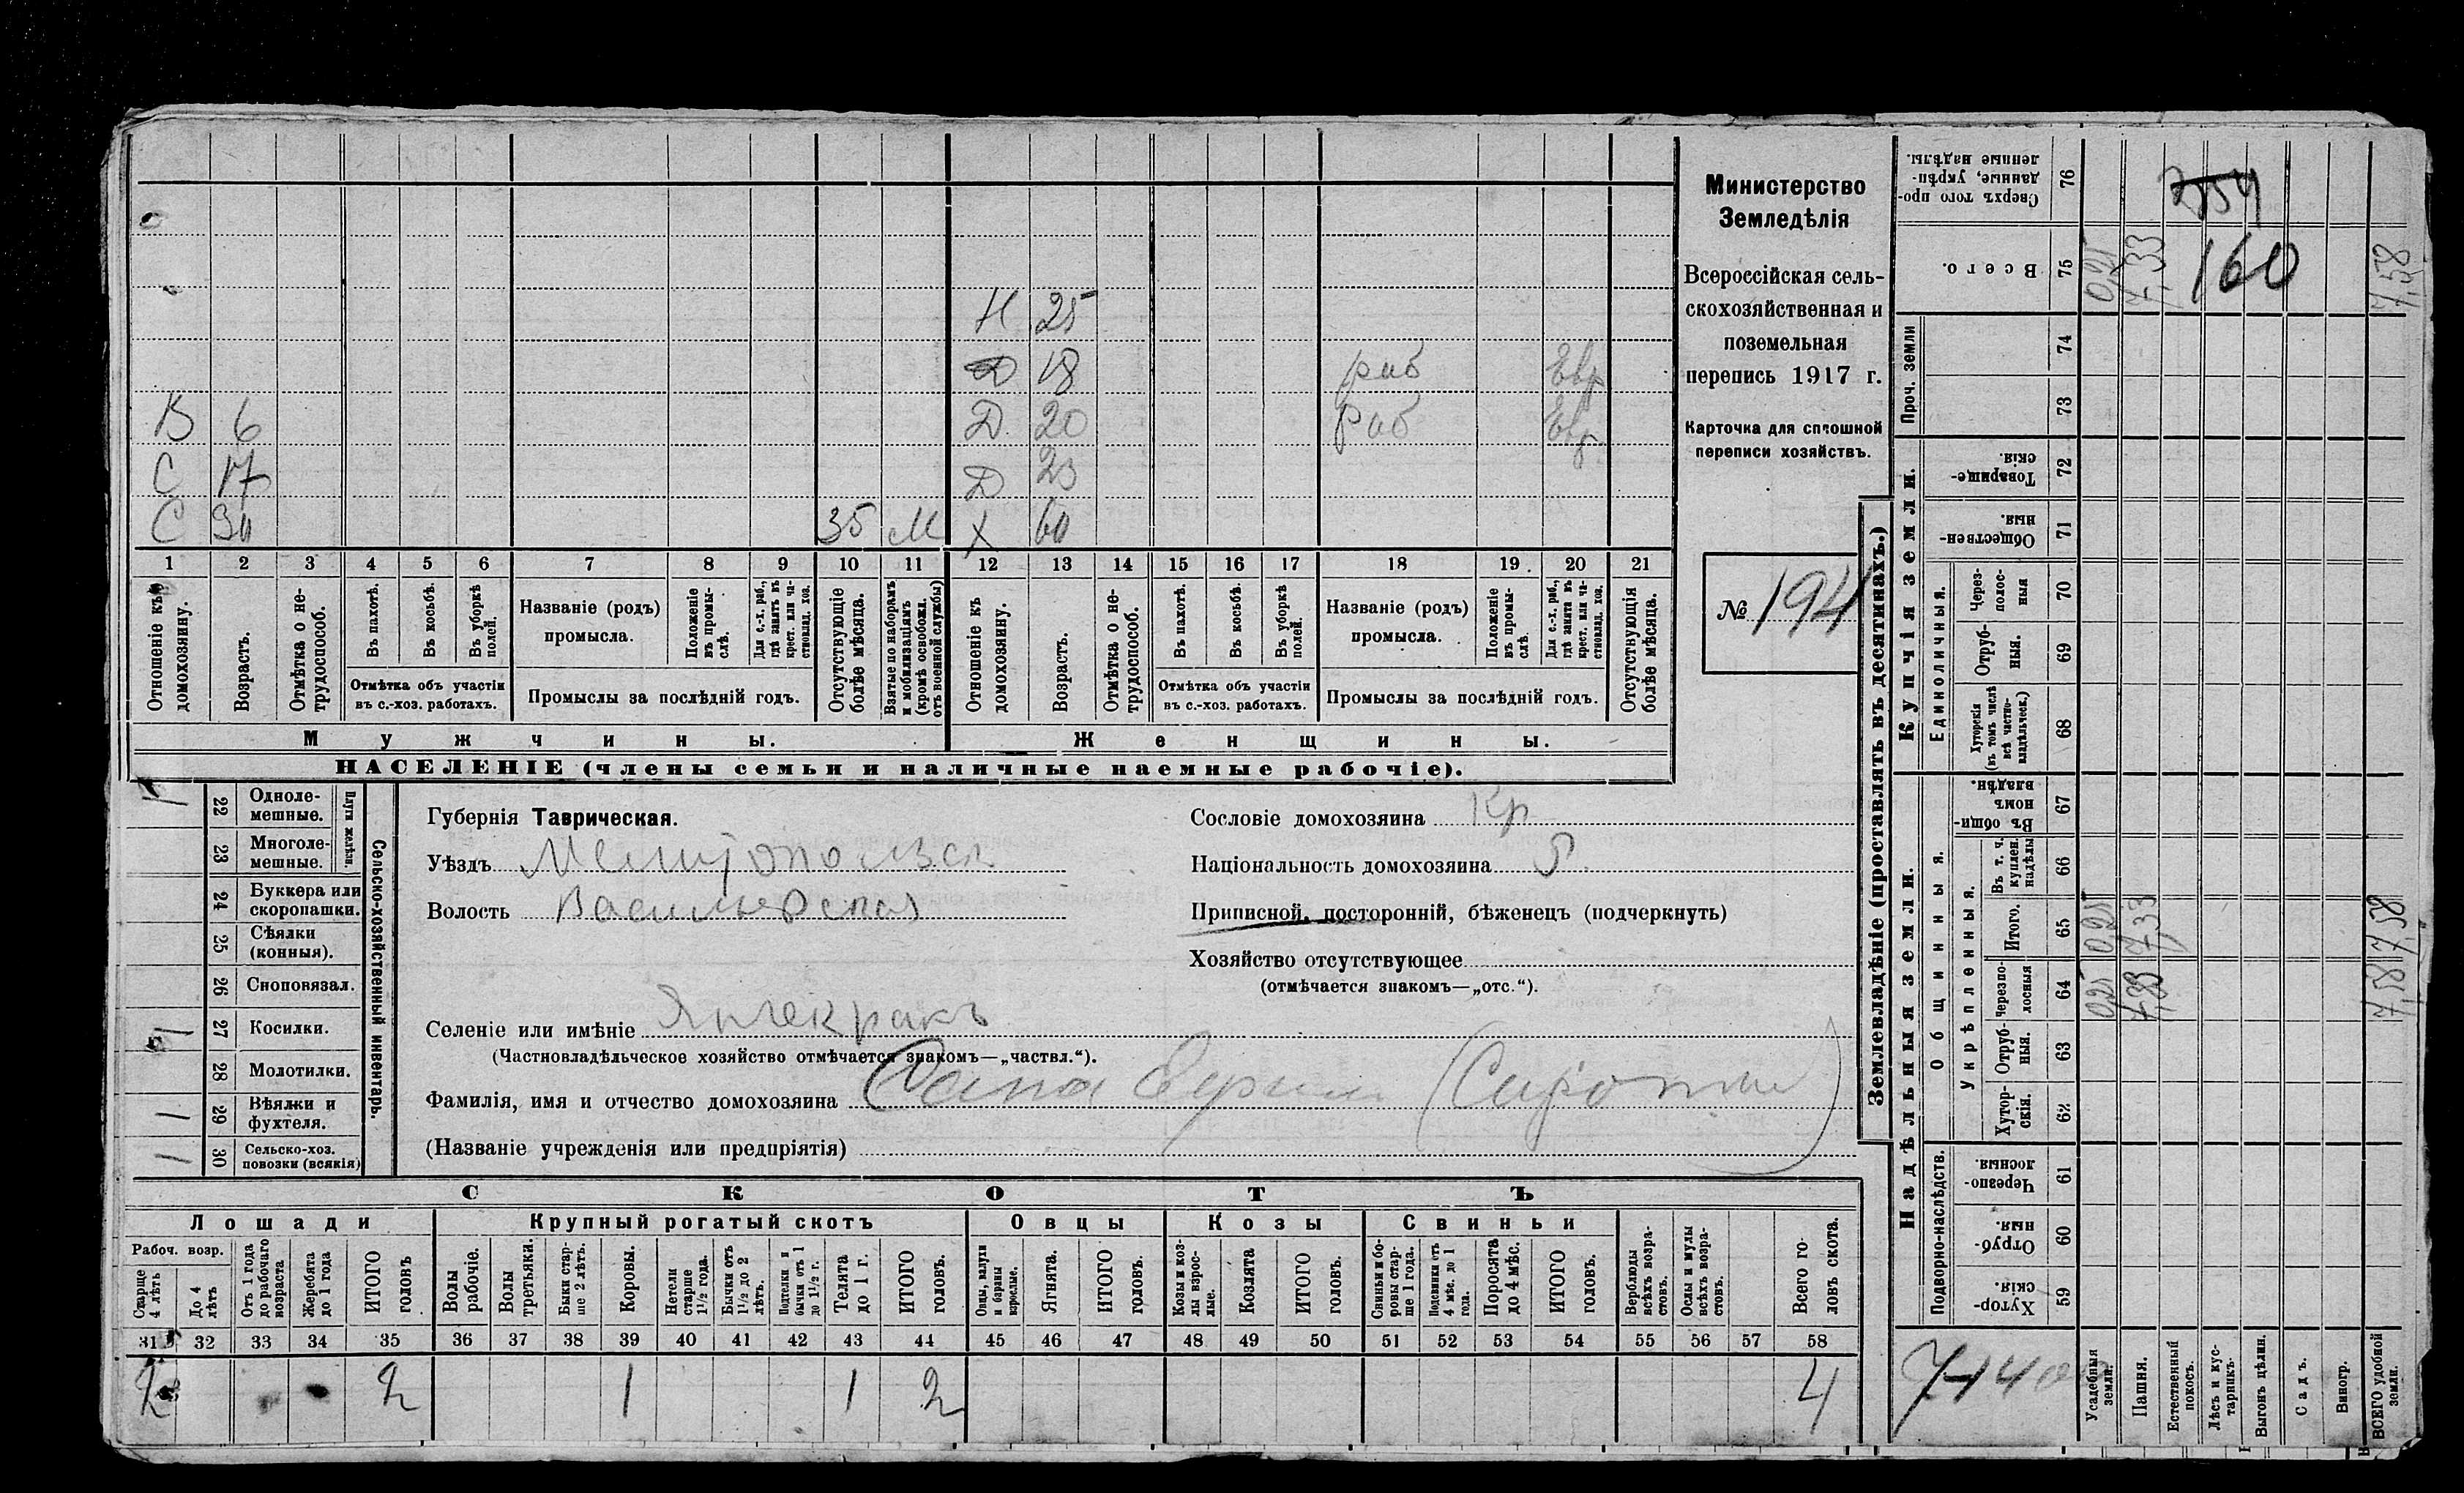 Министерство
Земледѣлія
Всероссійская сель-
скохозяйственная и
поземельная
перепись 1917 г.
Карточка для сплошной
переписи хозяйствъ.
№ 194
Н 25
Д 18 раб Евр
В 6 Д 20 Раб Евр
С 17 Д 23
С 35 М Х 60
1 2 3 4 5 6 7 8 9 10 11 12 13 14 15 16 17 18 19 20 21
Отношеніе къ домохозяину.
Возрастъ.
Отмѣтка о не-трудоспособ.
Въ пахотѣ.
Въ косьбѣ.
Въ уборкѣ полей.
Отмѣтка объ участіи въ с.-хоз. работахъ.
Названіе (родъ) промысла.
Положеніе въ промы-слѣ.
Для с.-х. раб., гдѣ занятъ въ крест. или ча-стновлад. хоз.
Промыслы за послѣдній годъ.
Отсутствующіе болѣе мѣсяца.
Взятые по наборамъ и мобилизаціямъ (кромѣ освобожд. отъ военной службы)
Отношеніе къ домохозяину.
Возрастъ.
Отмѣтка о не-трудоспособ.
Въ пахотѣ.
Въ косьбѣ.
Въ уборкѣ полей.
Отмѣтка объ участіи въ с.-хоз. работахъ.
Названіе (родъ) промысла.
Положеніе въ промы-слѣ.
Для с.-х. раб., гдѣ занята въ крест. или ча-стновлад. хоз.
Промыслы за послѣдній годъ.
Отсутствующія болѣе мѣсяца.
Мужчины. Женщины.
НАСЕЛЕНІЕ (члены семьи и наличные наемные рабочіе).
Сельско-хозяйственный инвентарь.
Плуги желѣзн.
1 22 Однолемешные.
23 Многолемешные.
24 Буккера или скоропашки.
25 Сѣялки (конныя).
26 Сноповязал.
1 27 Косилки.
28 Молотилки.
1 29 Вѣялки и фухтеля.
1 30 Сельско-хоз. повозки (всякія)
Губернія Таврическая.
Уѣздъ Мелитопольск
Волость Васильевская
Селеніе или имѣніе Янчекракъ
(Частновладѣльческое хозяйство отмѣчается знакомъ—„частвл.“).
Фамилія, имя и отчество домохозяина (Сироты)
(Названіе учрежденія или предпріятія)
Сословіе домохозяина Кр
Національность домохозяина Р
Приписной, посторонній, бѣженецъ (подчеркнуть)
Хозяйство отсутствующее
(отмѣчается знакомъ—„отс.“).
СКОТЪ
Лошади Крупный рогатый скотъ Овцы Козы Свиньи
Рабоч. возр.
Старше 4 лѣтъ
До 4 лѣтъ
Отъ 1 года до рабочаго возраста
Жеребята до 1 года
ИТОГО головъ
Волы рабочіе.
Волы третьяки.
Быки стар-ше 2 лѣтъ.
Коровы.
Нетели старше 1 1/2 года.
Бычки отъ 1 1/2 до 2 лѣтъ.
Подтелки и бычки отъ 1 до 1 1/2 г.
Телята до 1 г.
ИТОГО головъ.
Овцы, валухи и бараны взрослые.
Ягнята.
ИТОГО головъ.
Козы и коз-лы взрос-лые.
Козлята
ИТОГО головъ.
Свиньи и бо-ровы стар-ше 1 года.
Подсвинки отъ 4 мѣс. до 1 года.
Поросята до 4 мѣс.
ИТОГО головъ.
Верблюды всѣхъ возра-стовъ.
Ослы и мулы всѣхъ возра-стовъ.
Всего го-ловъ скота.
31 32 33 34 35 36 37 38 39 40 41 42 43 44 45 46 47 48 49 50 51 52 53 54 55 56 57 58
2 2 1 1 2 4
Землевладѣніе (проставлять въ десятинахъ.)
Купчія земли.
Надѣльныя земли.
Проч. земли
Единоличныя.
Общинныя.
Укрѣпленныя.
Подворно-наслѣдств.
Сверхъ того про-данные, укрѣп-ленные надѣлы. 76
Всего. 75 0,25 7,33 7,58
254
160
74
73
Товарище-скія. 72
Обществен-ныя. 71
Через-полос-ныя 70
Отруб-ныя. 69
Хуторскія (въ томъ числѣ всѣ частно-владѣльческ.) 68
Въ общи-номъ владѣн. 67
Въ т. ч. куплен. надѣлы 66
Итого. 65 0,25 7,33 7,58
Черезпо-лосныя 64 0,25 7,33 7,58
Отруб-ныя. 63
Хутор-скія. 62
Черезпо-лосныя 61
Отруб-ныя. 60
Хутор-скія. 59
Усадебныя земли.
Пашня.
Естественный покосъ.
Лѣсъ и кус-тарникъ.
Выгонъ цѣлин.
Садъ.
Виногр.
ВСЕГО удобной земли.